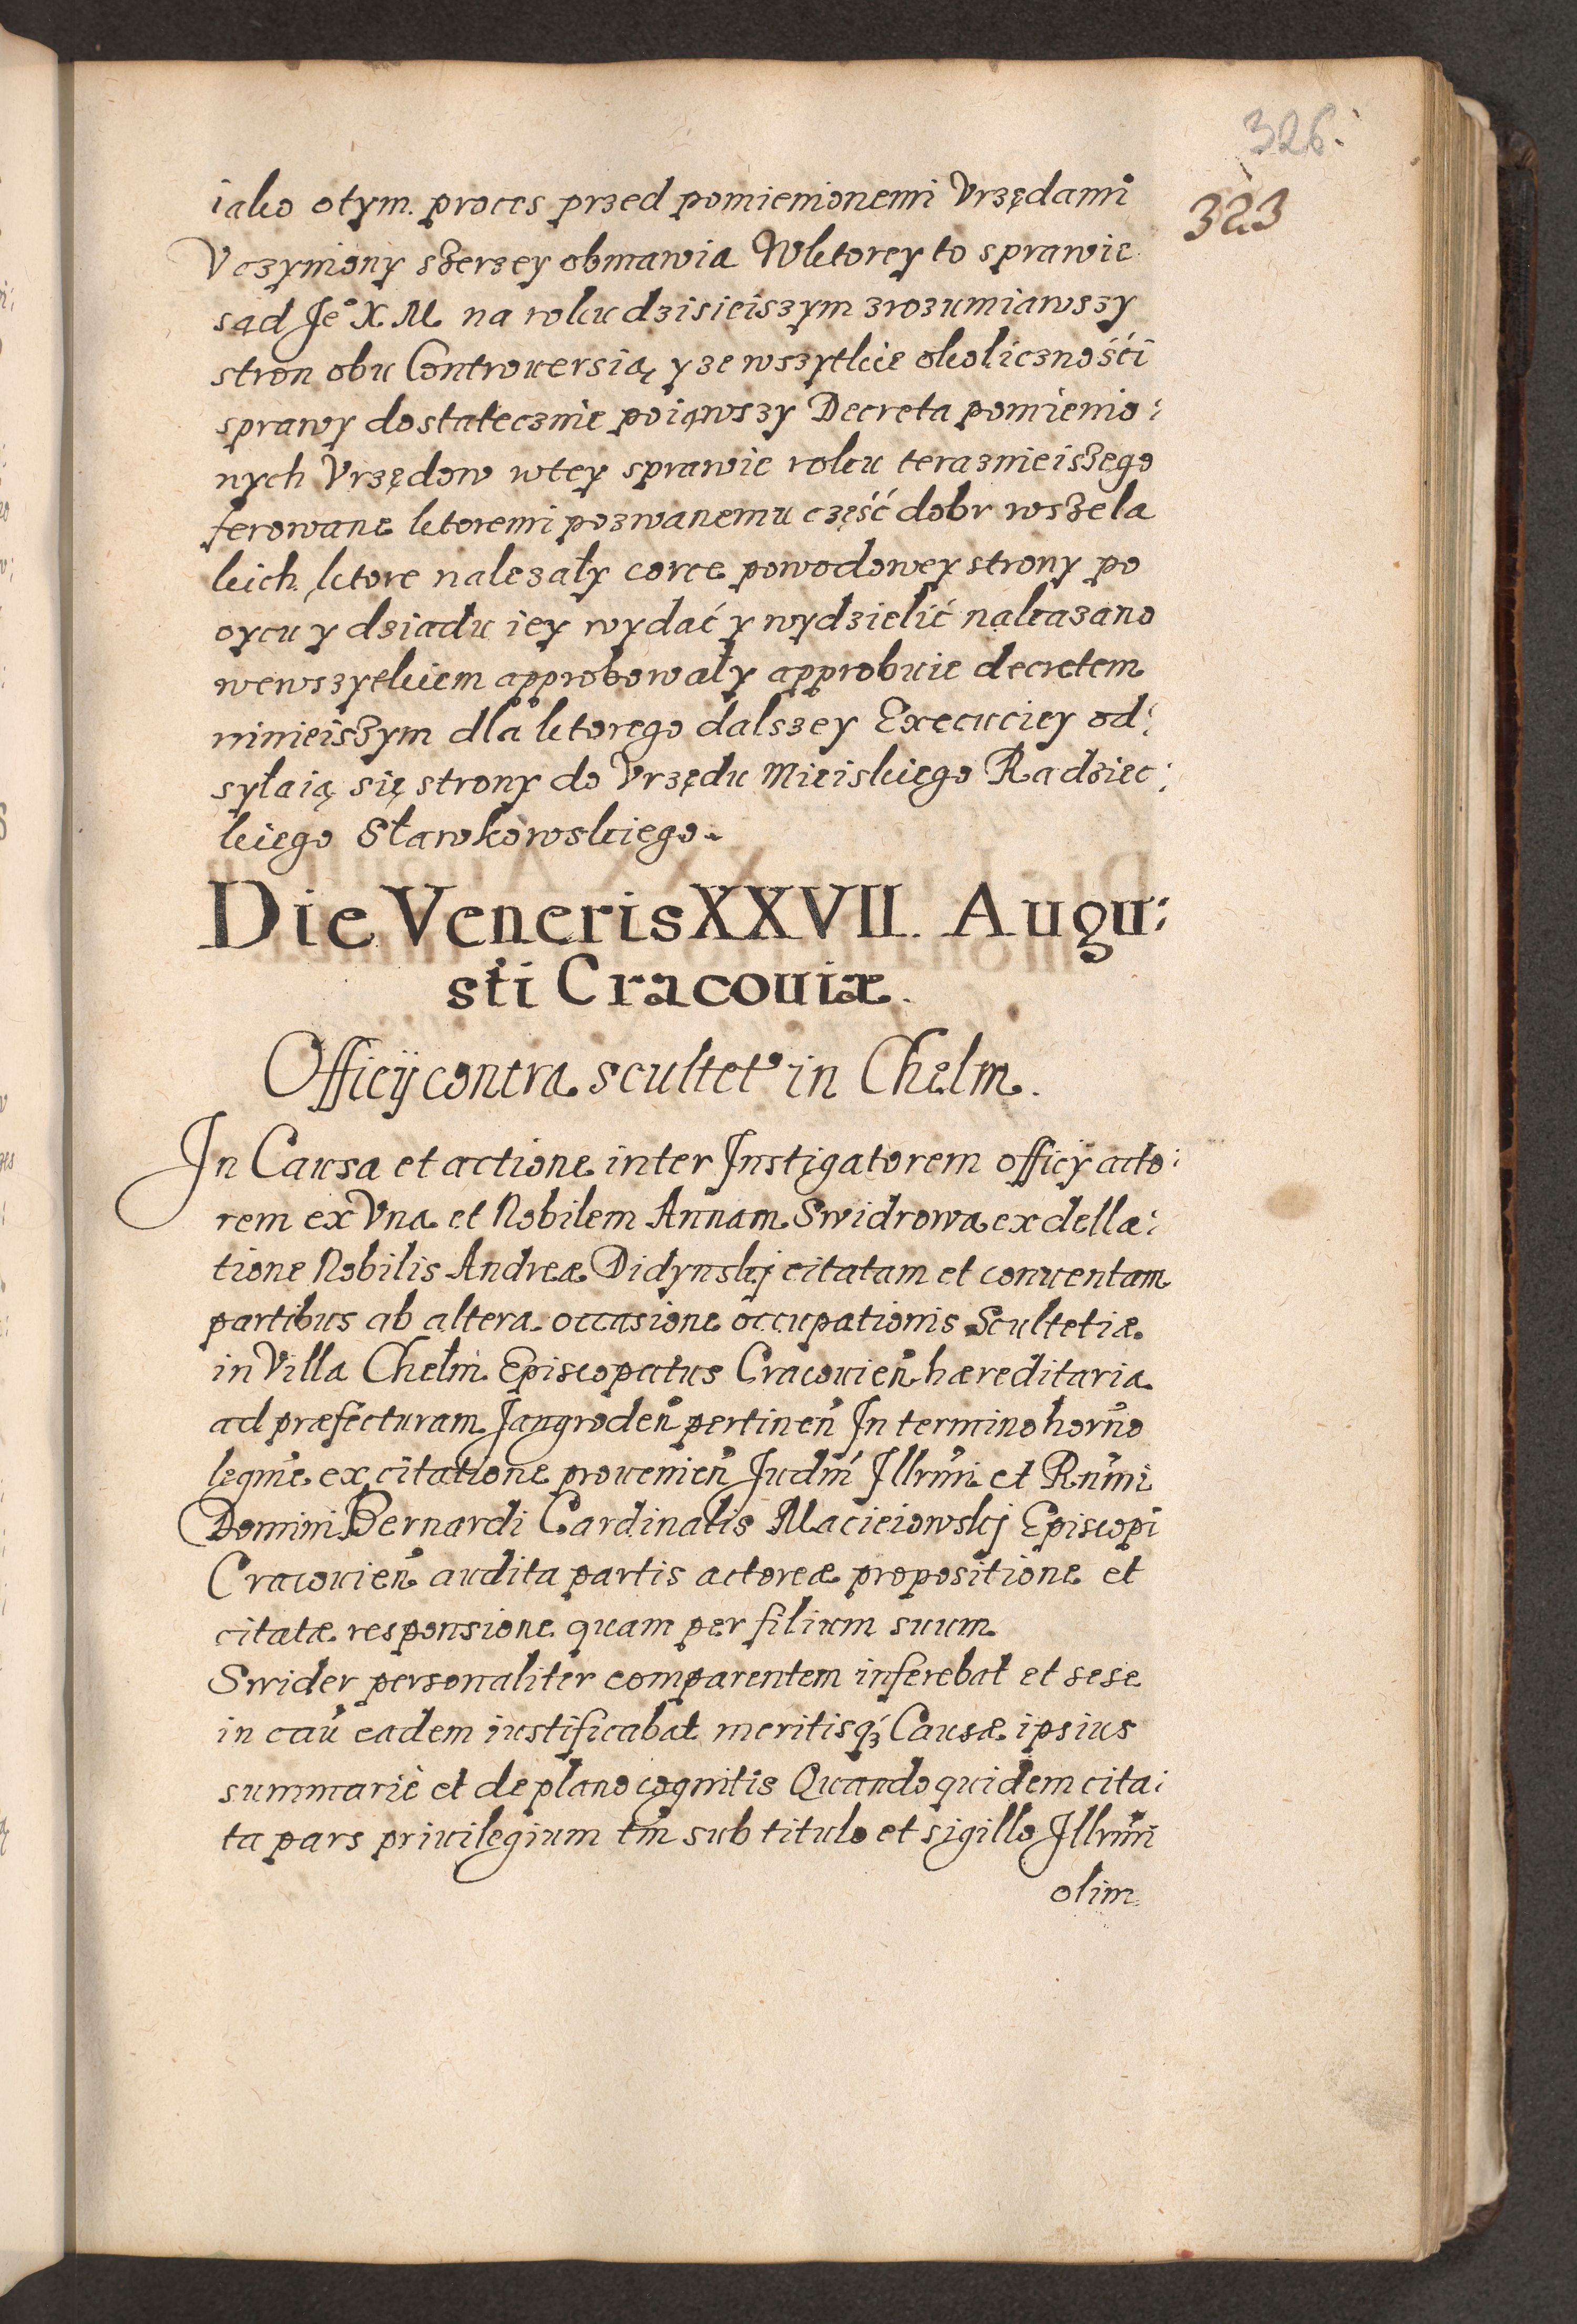 326.
323
iako otym. proces przed pomienionemi Vrzędami
Vczyniony szerzey obmawia Wktorey to sprawie
sąd Je° X M na roku dzisieiszym zrozumiawszy
stron obu Controuersią y ze wszytkie okolicznośći
sprawy dostatecznie poiąwszy Decreta pomienio:
nych Vrzędow wtey sprawie roku teraznieiszego
ferowane ktoremi pozwanemu część dobr wszela
kich ktore nalezały corce powodowey strony po
oycu y dziadu iey wydać y wydzielić nakazano
wewszytkiem approbowały approbuie decretem
ninieiszym dla ktorego dalszey Execuciey od:
syłaią się strony do Vrzędu Mieiskiego Radziec:
kiego Sławkowskiego.
Die Veneris XXVII. Augu:
sti Cracouiæ.
Officij contra scultet° in Chelm.
In Causa et actione inter Instigatorem officy acto:
rem ex Vna et Nobilem Annam Swidrowa ex della:
tione Nobilis Andreæ Didynskj citatam et conuentam
partibus ab altera occasione occupationis Scultetiæ
in Villa Chełm Episcopatus Cracouien̄ hæreditaria
ad præfecturam Jangroden̄ pertinen̄ In termino horn̄o
legm̄e ex citatione prouenien̄ Judm̄ Illrm̄i et Rnm̄i
Domini Bernardi Cardinalis Macieiowskj Episcopi
Cracouien̄ audita partis actoreæ propositione et
citatæ responsione quam per filium suum
Swider personaliter comparentem inferebat et sese
in cau̅ eadem iustificabat meritisq́3 Causæ ipsius
summarie et de plano cognitis Quandoquidem cita:
ta pars priuilegium tm̄ sub titulo et sigillo Illrm̄i
olim